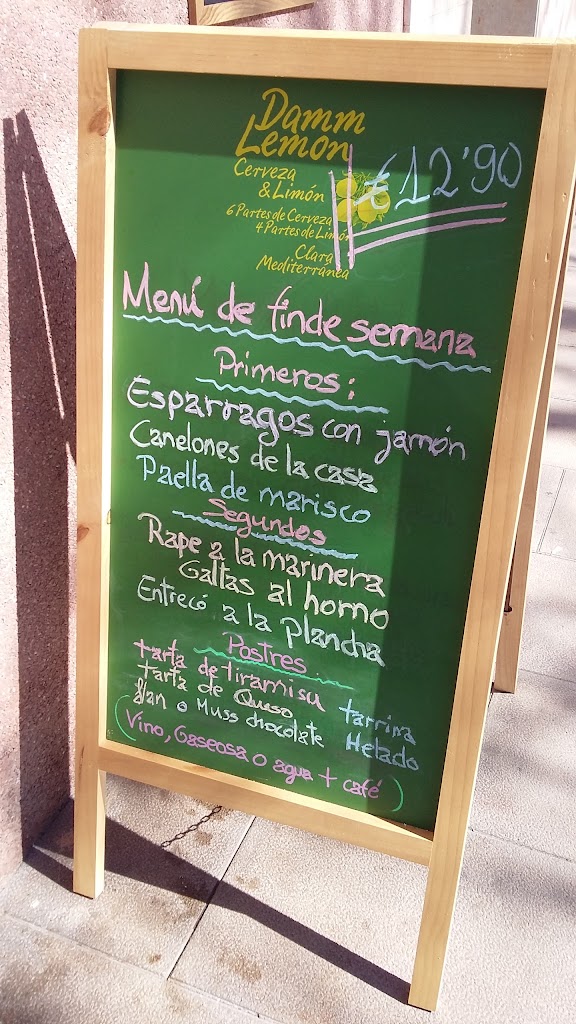 Damm
Lemon
€12'90
Cerveza
& Limón
6 Partes de Cerveza
4 Partes de Limón
Clara
Mediterránea
Menú de finde semana
Primeros:
Esparragos con jamón
Canelones de la casa
Paella de marisco
Segundos
Rape a la marinera
Galtas al horno
Entrecó a la plancha
Postres
tarta de tiramisu
tarta de Queso
flan o Muss chocolate
tarrina
Helado
(Vino, Gaseosa o agua + café)